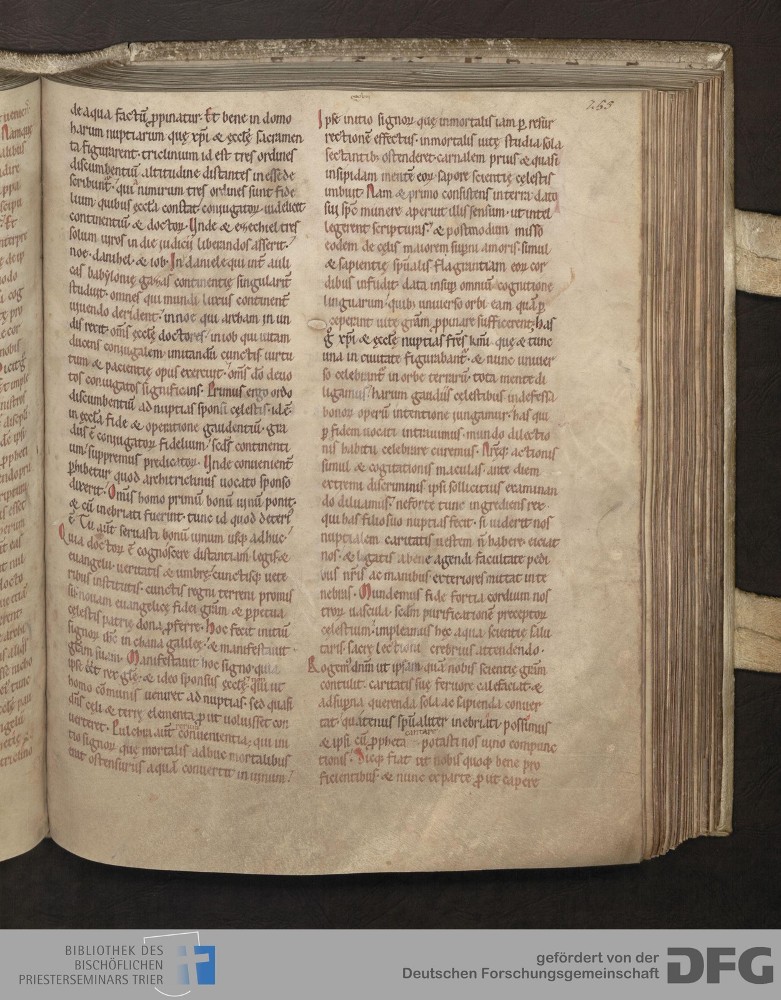 265
de aqua factū ꝓpinatur. Et bene in domo
harum nuptiarum quę xp̄i & ęccłę sacramen
ta figurarent. triclinium id est tres ordines
discumbentiū altitudine distantes inesse de
scribunt. qui nimirum tres ordines sunt fide
lium quibus ęccła constat. coniugatoꝝ uidelicet
continentiū & doctoꝝ. Unde & ezechiel tres
solum uiros in die iudicii liberandos asserit.
noe. danihel. & iob. In daniele qui int̄ auli
cas babylonię gazas continentię singularit̄
studuit. omnes qui mundi luxus continent̄
uiuendo derident. in noe qui archam in un
dis rexit. om̄s ęccłę doctores. in iob qui uitam
ducens coniugalem imitandū cunctis uirtu
tum & pacientię opus exercuit. om̄s d̄o deuo
tos coniugatos significans. Primus ergo ordo
discumbentiū ad nuptias sponsi cęlestis. id ē
in ęccła fide & operatione gaudentiū. gra
dus ē coniugatoꝝ fidelium. sc̄ds continenti
um. suppremus predicatoꝝ. Unde conuenient̄
ꝑhibetur quod architriclinus uocato sponso
dixerit. Omīs homo primū bonū uinū ponit.
& cū inebriati fuerint. tunc id quod deteri
ē. Tu aut̄ seruasti bonū uinum usqꝫ adhuc.
Quia doctoꝝ ē cognoscere distantiam legis &
euangelii. ueritatis & umbrę. cunctisqꝫ uete
ribus institutis. cunctis regni terreni promis
sis. nouam euangelicę fidei gr̄am. & ꝑpetua
cęlestis patrię dona ꝓferre. Hoc fecit initiū
signoꝝ ih̄c in chana galileę. & manifestauit
głam suam. Manifestauit hoc signo quia
ipse ēēt rex głę. & ideo sponsus ęccłę. qui ut
homo cōmunis ueniret ad nuptias. sed quasi
dn̄s cęli & terrę elementa ꝓut uoluisset con
uerteret. Pulchra aut̄ conuenientia. qui ini
tio signoꝝ quę mortalis adhuc mortalibus
erat ostensurus aquā conuertit in uinum.
Ipse initio signoꝝ quę inmortalis iam ꝑ resur
rectionē effectus. inmortalis uitę studia sola
sectantibꝫ ostenderet. carnalem prius & quasi
insipidam mentē eoꝝ sapore scientię cęlestis
imbuit. Nam & primo consistens in terra dato
sui sp̄c munere aperuit illis sensum. ut intel
legerent scripturas. & postmodum misso
eodem de cęlis maiorem superni amoris. simul
& sapientię sp̄ualis flagrantiam eoꝝ cor
dibus infudit. data insup omniū cognitione
linguarum. quibꝫ uniuerso orbi eam quā ꝑ
ceperant uitę gr̄am. ꝓpinare sufficerent. Has
g̊ xp̄i & ęccłę nuptias fr̄es km̄i. quę & tunc
una in ciuitate figurabant̄. & nunc uniuer
so celebrant̄ in orbe terrarū. tota mente di
ligamus. harum gaudiis cęlestibus indefessa
bonoꝝ operū intentione iungamur. has qui
ꝑ fidem uocati intrauimus. mundo dilectio
nis habitu celebrare curemus. Atqꝫ actionis
simul & cogitationis maculas. ante diem
extremi discriminis ipsi sollicitius examinan
do diluamus. ne forte tunc ingrediens rex
qui has filio suo nuptias fecit. si uiderit nos
nuptialem caritatis uestem n̄ habere. eiciat
nos. & ligatis a bene agendi facultate pedi
bus nr̄is ac manibus exteriores mittat in te
nebras. Mundemus fide fortia cordium nos
troꝝ uascula. sc̄dm purificationē preceptoꝝ
cęlestium. impleamus hęc aqua scientię salu
taris. sacrę lectioni crebrius attendendo.
Rogem' dn̄m ut ipsam quā nobis scientię gr̄am
contulit. caritatis suę feruore calefaciat. &
ad supna querenda sola ac sapienda conuer
tat. quatenus spūaliter inebriati. possimus
cantare
& ipsi cū ꝓpheta. potasti nos uino compunc
tionis. Sicqꝫ fiat ut nobis quoqꝫ bene pro
ficientibus. & nunc ex parte ꝓ ut capere
BIBLIOTHEK DES
BISCHÖFLICHEN
PRIESTERSEMINARS TRIER
gefördert von der
Deutschen Forschungsgemeinschaft
DFG